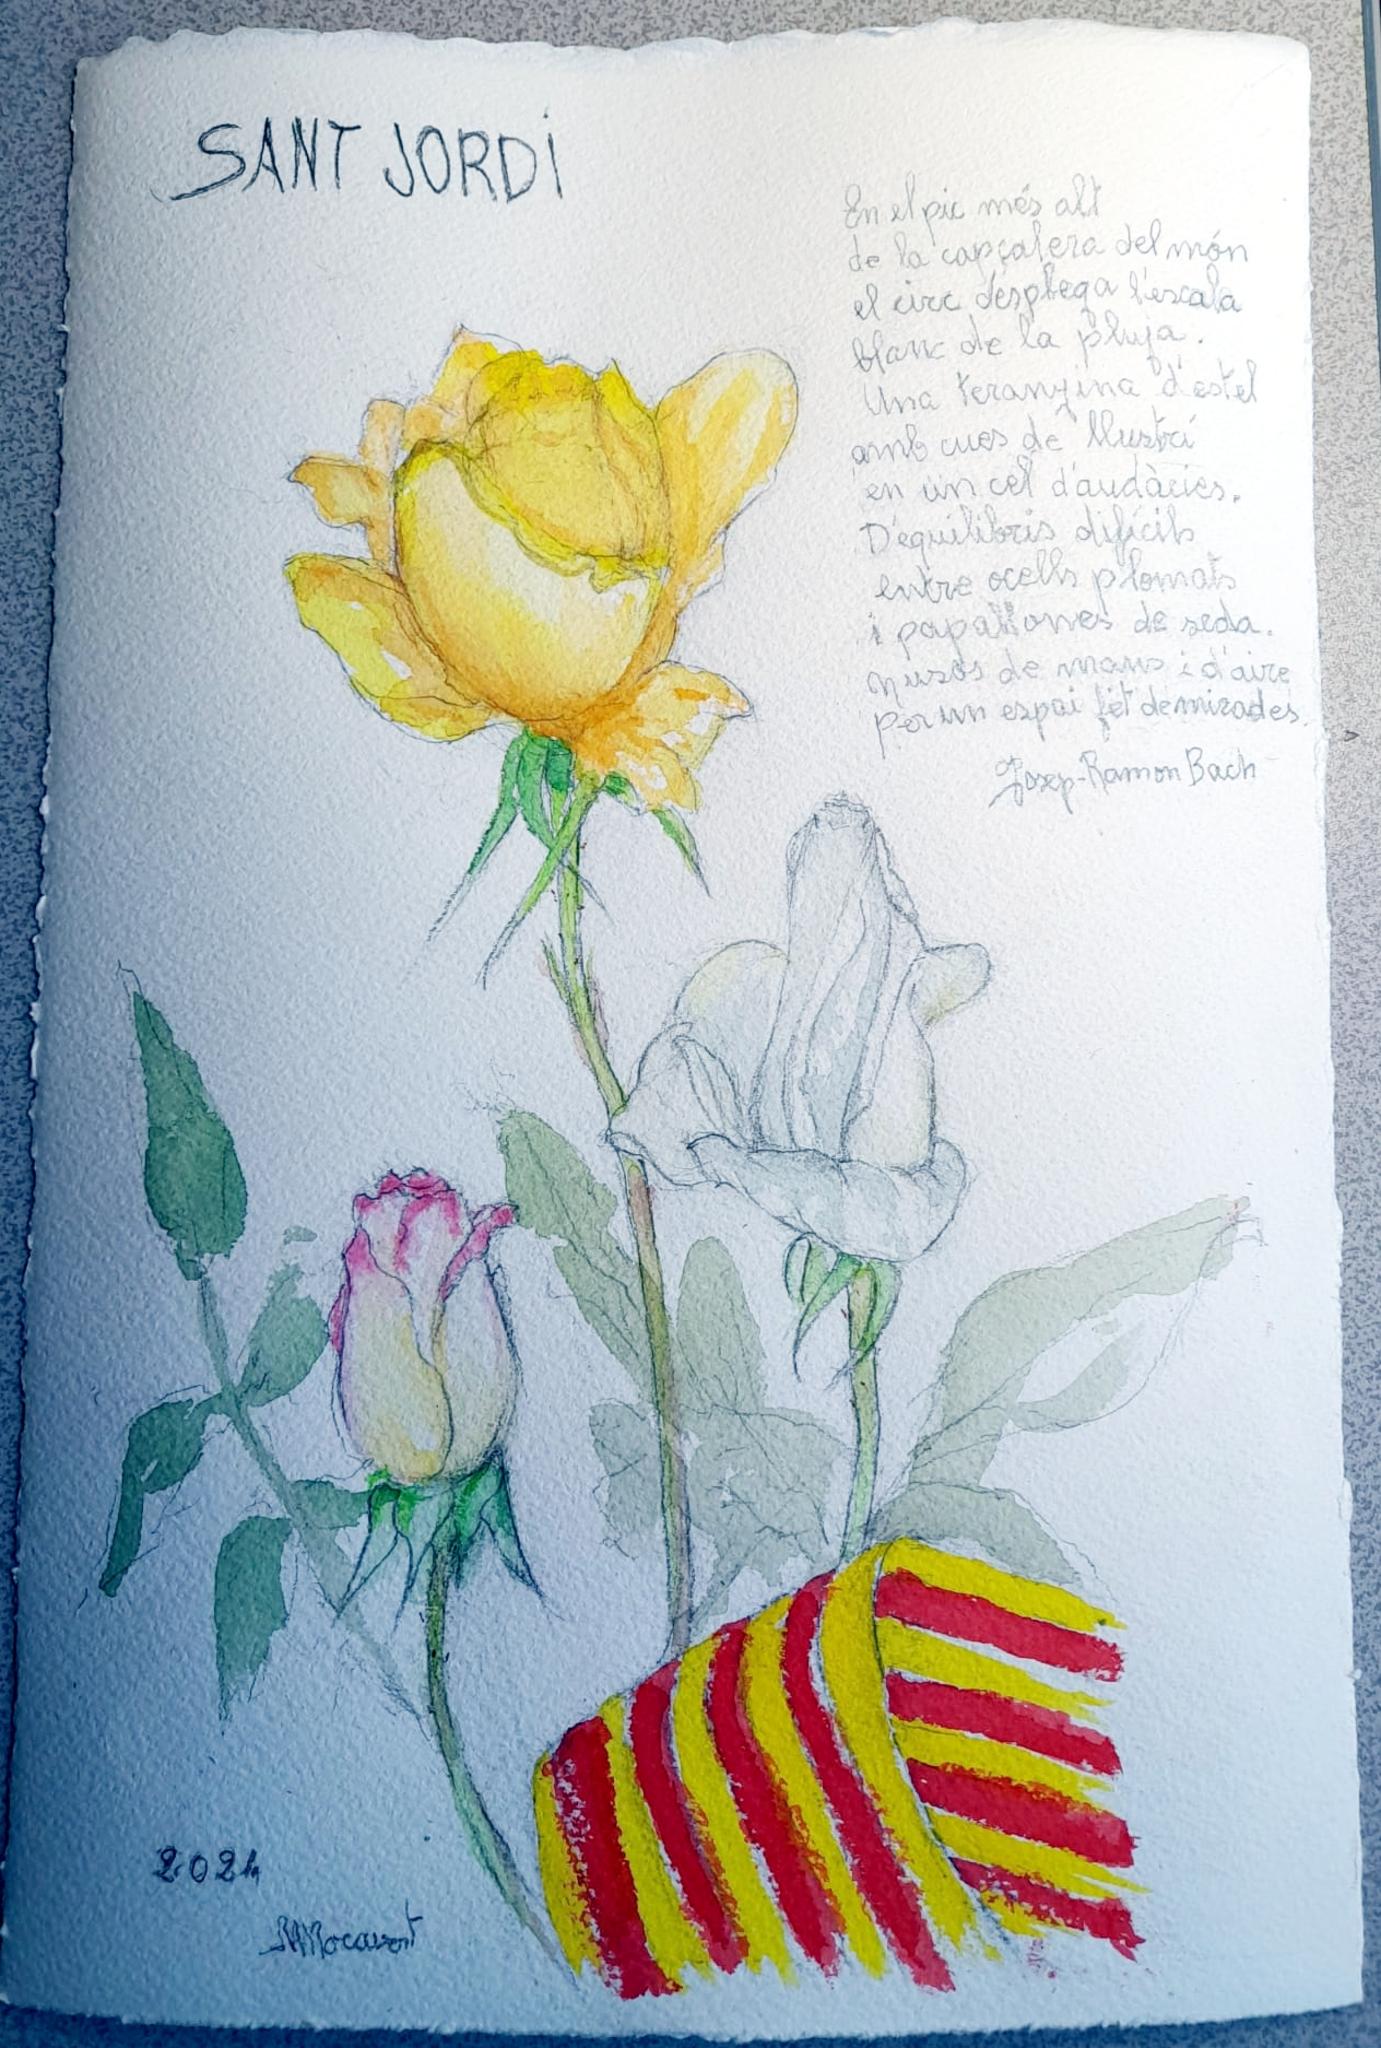 SANT JORDI
En el pic més alt
de la capçalera del món
el circ desplega l'escala
blanc de la pluja.
Una teranyina d'estel
amb cues de llustrí
en un cel d'audàcies.
D'equilibris difícils
entre ocells plomats
i papallones de seda.
de mans i d'aire
per un espai fet de mirades.
Josep-Ramon Bach
2024